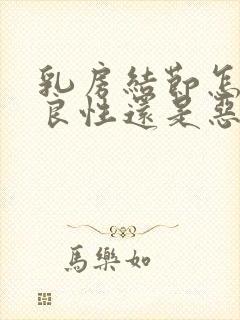 乳房結節怎
良性還是惡
馬樂如